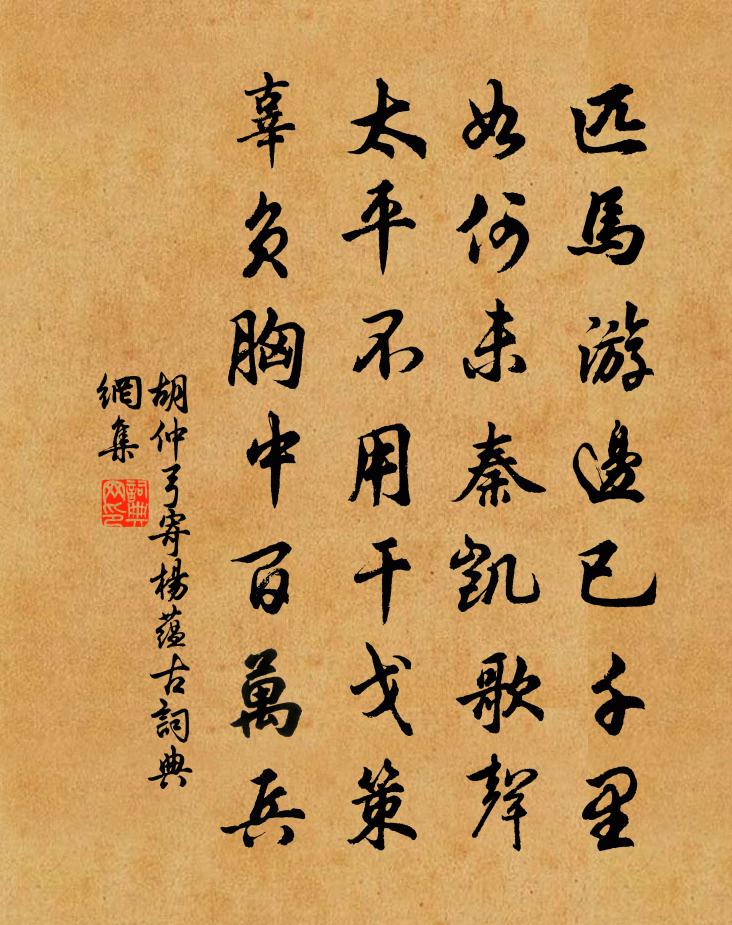 匹馬游邊已千里
如何未秦凱歌聲
太平不用干戈策
辜負胸中百萬兵
胡仲弓寄楊蘊古詞典
網集
詞典
网印